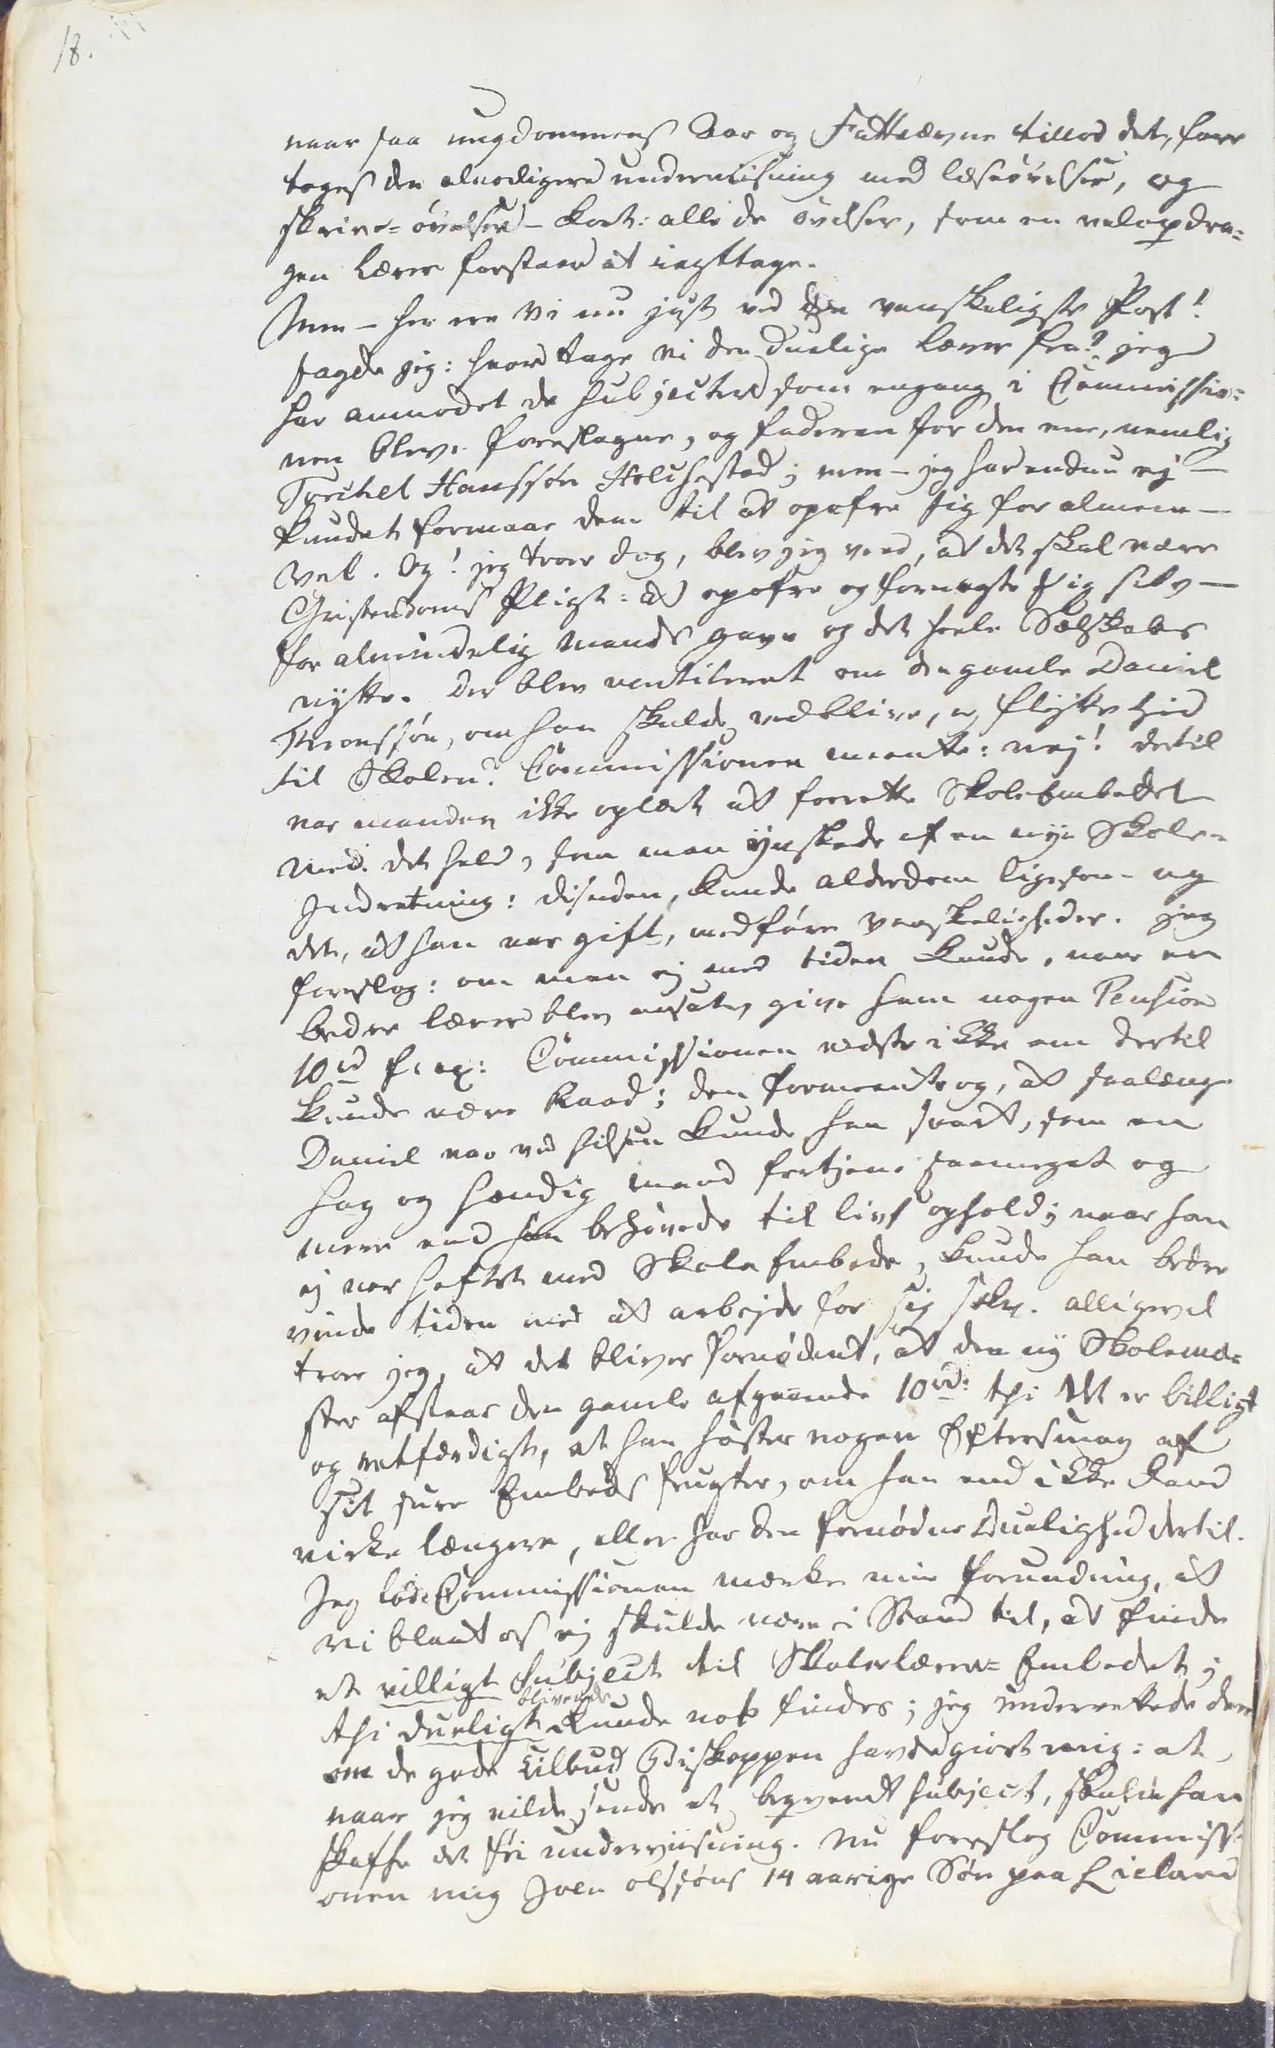 18.
naar saa ungdommens Aar og Fatteævne tillod det, fore
toges den alvorligere underviisning med læseövelser, og
skrive-övelser - kort: alle de övelser, som en velopdra-
gen lærer forstaaer at iagttage.
Men - her ere vi nu just ved den vanskeligste Post!
sagde jeg: hvor tage vi den duelige lærer fra? jeg
har anmodet de Subjecter som engang i Commissio-
nen blev foreslagne, og faderen for den ene, nemlig
Torchel Hanssön Holchestad; men - jeg har endnu ej
kundet formaae dem til at opofre sig for almeen-
vel. Og! jeg troer dog, blev jeg ved, at det skal være
Christendoms Pligt: at opofre og fornegte sig selv -
for almindelig mands gavn og det heele Selskabs
nytte. Der blev ventileret om den gamle Daniel
Thronssön, om han skulde vedblive, og flytte hid
til Skolen? Commissionen meente: nej! dertil
var manden ikke oplært at forrette Skoleembedet
med det held, som man ynskede af en nye Skole-
Indretning: desuden, kunde alderdom ligesom - og
det, at han var gift, medföre vanskeligheder. jeg
foreslog: om man ej med tiden kunde, naar en
bedre lærer blev ansat, give ham nogen Pension
10 rd f. ex: Commissionen vidste ikke om dertil
kunde være Raad; den formeente og, at saalænge
Daniel var ved helsen kunde han snart, som en
hag og hændig mand fortjene saameget og
mere end han behövede til livs ophold; naar han
ej var heftet med Skole Embede, kunde han bedre
vinde tiden med at arbejde for sig selv. alligevel
troer jeg, at det bliver fornødent, at den ny Skoleme-
ster afstaaer den gamle afgaaende 10 rd: thi det er billigt
og retfærdigt, at han höster nogen Eftersmag af
sit sure Embeds frugter, om han end ikke kand
virke længere, eller har den fornødne Duelighed dertil.
Jeg lod Commissionen mærke min forundring, at
vi blant os ej skulde være i Stand til, at finde
et villigt Subject til Skolelærer-Embedet;
blivende
thi dueligt kunde nok findes; jeg underrettede dem
om de gode tilbud Biskoppen havde giort mig: at
naar jeg vilde sende et beqvemt Subject, skulde han
skaffe det fri underviisning. Nu foreslog Commissi-
onen mig Joen olssöns 14 aarige Sön paa Lieland